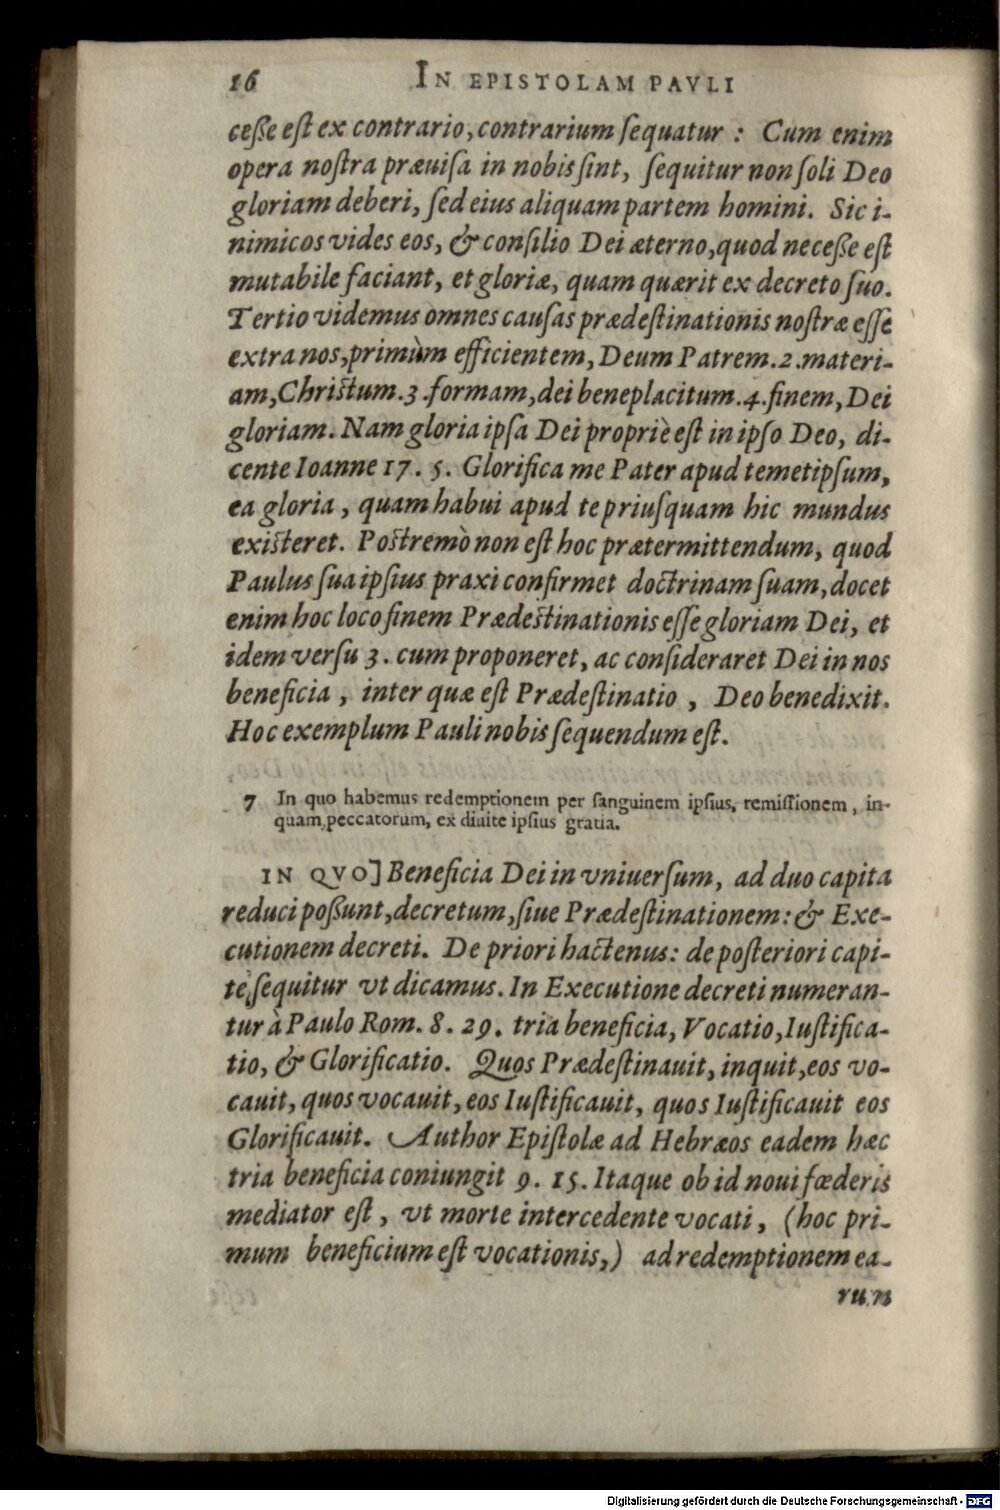 16 IN EPISTOLAM PAVLI
ceſſe eſt ex contrario, contrarium ſequatur : Cum enim
opera noſtra præuiſa in nobis ſint, ſequitur non ſoli Deo
gloriam deberi, ſed eius aliquam partem homini. Sic i-
nimicos vides eos, & conſilio Dei æterno, quod neceſſe eſt
mutabile faciant, et gloriæ, quam quærit ex decreto ſuo.
Tertio videmus omnes cauſas prædeſtinationis noſtræ eſſe
extra nos, primùm efficientem, Deum Patrem. 2. materi-
am, Chriſtum. 3. formam, dei beneplacitum. 4. finem, Dei
gloriam. Nam gloria ipſa Dei propriè eſt in ipſo Deo, di-
cente Ioanne 17. 5. Glorifica me Pater apud temetipſum,
ea gloria, quam habui apud te priuſquam hic mundus
exiſteret. Poſtremò non eſt hoc prætermittendum, quod
Paulus ſua ipſius praxi confirmet doctrinam ſuam, docet
enim hoc loco finem Prædeſtinationis eſſe gloriam Dei, et
idem verſu 3. cum proponeret, ac conſideraret Dei in nos
beneficia, inter quæ eſt Prædeſtinatio, Deo benedixit.
Hoc exemplum Pauli nobis ſequendum eſt.
7 In quo habemus redemptionem per ſanguinem ipſius, remiſſionem, in-
quam, peccatorum, ex diuite ipſius gratia.
IN QVO] Beneficia Dei in vniuerſum, ad duo capita
reduci poſſunt, decretum, ſiue Prædeſtinationem: & Exe-
cutionem decreti. De priori hactenus: de poſteriori capi-
te, ſequitur vt dicamus. In Executione decreti numeran-
tur à Paulo Rom. 8. 29. tria beneficia, Vocatio, Iuſtifica-
tio, & Glorificatio. Quos Prædeſtinauit, inquit, eos vo-
cauit, quos vocauit, eos Iuſtificauit, quos Iuſtificauit eos
Glorificauit. Author Epiſtolæ ad Hebræos eadem hæc
tria beneficia coniungit 9. 15. Itaque ob id noui fœderis
mediator eſt, vt morte intercedente vocati, (hoc pri-
mum beneficium eſt vocationis,) ad redemptionem ea-
rum
Digitalisierung gefördert durch die Deutsche Forschungsgemeinschaft - DFG